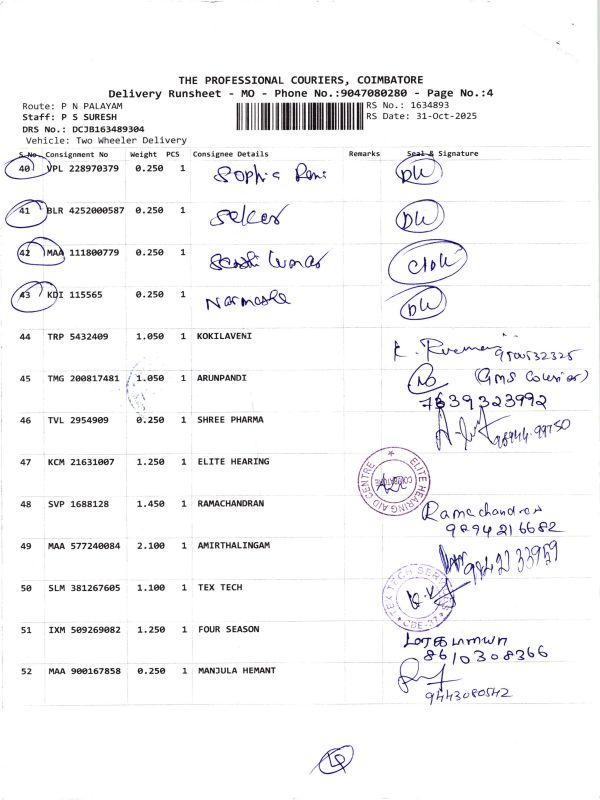 THE PROFESSIONAL COURIERS, COIMBATORE
Delivery Runsheet - MO - Phone No.:9047080280 - Page No.:4
Route: P N PALAYAM RS No.: 1634893
Staff: P S SURESH RS Date: 31-Oct-2025
DRS No.: DCJB163489304
Vehicle: Two Wheeler Delivery
S.No Consignment No Weight PCS Consignee Details Remarks Seal & Signature
40 VPL 228970379 0.250 1 Sophia Rani
41 BLR 4252000587 0.250 1
42 MAA 111800779 0.250 1
43 KDI 115565 0.250 1 Narmatha
44 TRP 5432409 1.050 1 KOKILAVENI
45 TMG 200817481 1.050 1 ARUNPANDI No (GMS Courier)
7539323992
46 TVL 2954909 0.250 1 SHREE PHARMA
47 KCM 21631007 1.250 1 ELITE HEARING ELITE HEARING AID CENTRE COIMBATORE
48 SVP 1688128 1.450 1 RAMACHANDRAN Ramachandran
9894216682
49 MAA 577240084 2.100 1 AMIRTHALINGAM
50 SLM 381267605 1.100 1 TEX TECH TEX TECH SERVICES CBE-37
51 IXM 509269082 1.250 1 FOUR SEASON
8610308366
52 MAA 900167858 0.250 1 MANJULA HEMANT
9443080542